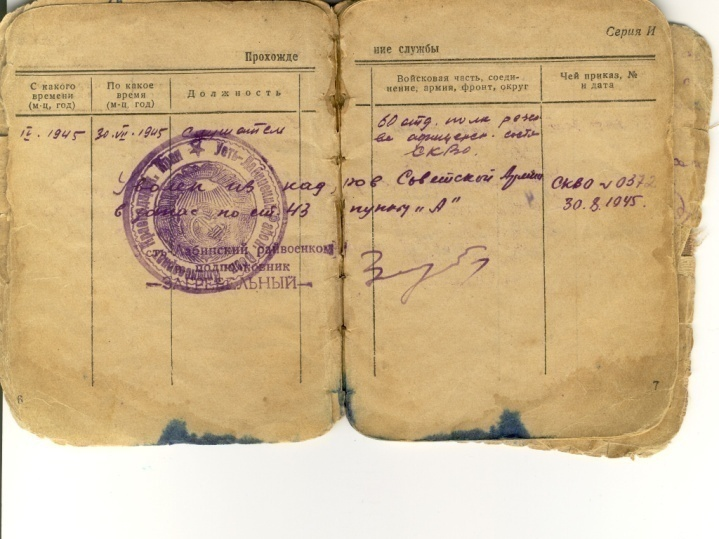 Серия И
Прохожде ние службы
С какого времени (м-ц, год)
По какое время (м-ц, год)
Должность
Войсковая часть, соеди-
нение, армия, фронт, округ
Чей приказ, № и дата
IV-1945 30-VII-1945 Слушатель 60 отд. полк резер-
ва офицерск. соста
СКВО.
Уволен из кадров Советской Армии СКВО № 0372
в запас по ст. 43 пункту „А“ 30.8.1945.
Лабинский райвоенком
подполковник
—ЗАГРЕБЕЛЬНЫЙ—
6
7